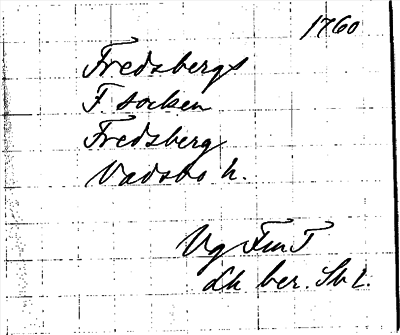 1760
Fredsbergs
F. socken
Fredsberg
Vadsbo h.
Vg FmT
Lk ber. Sbl.